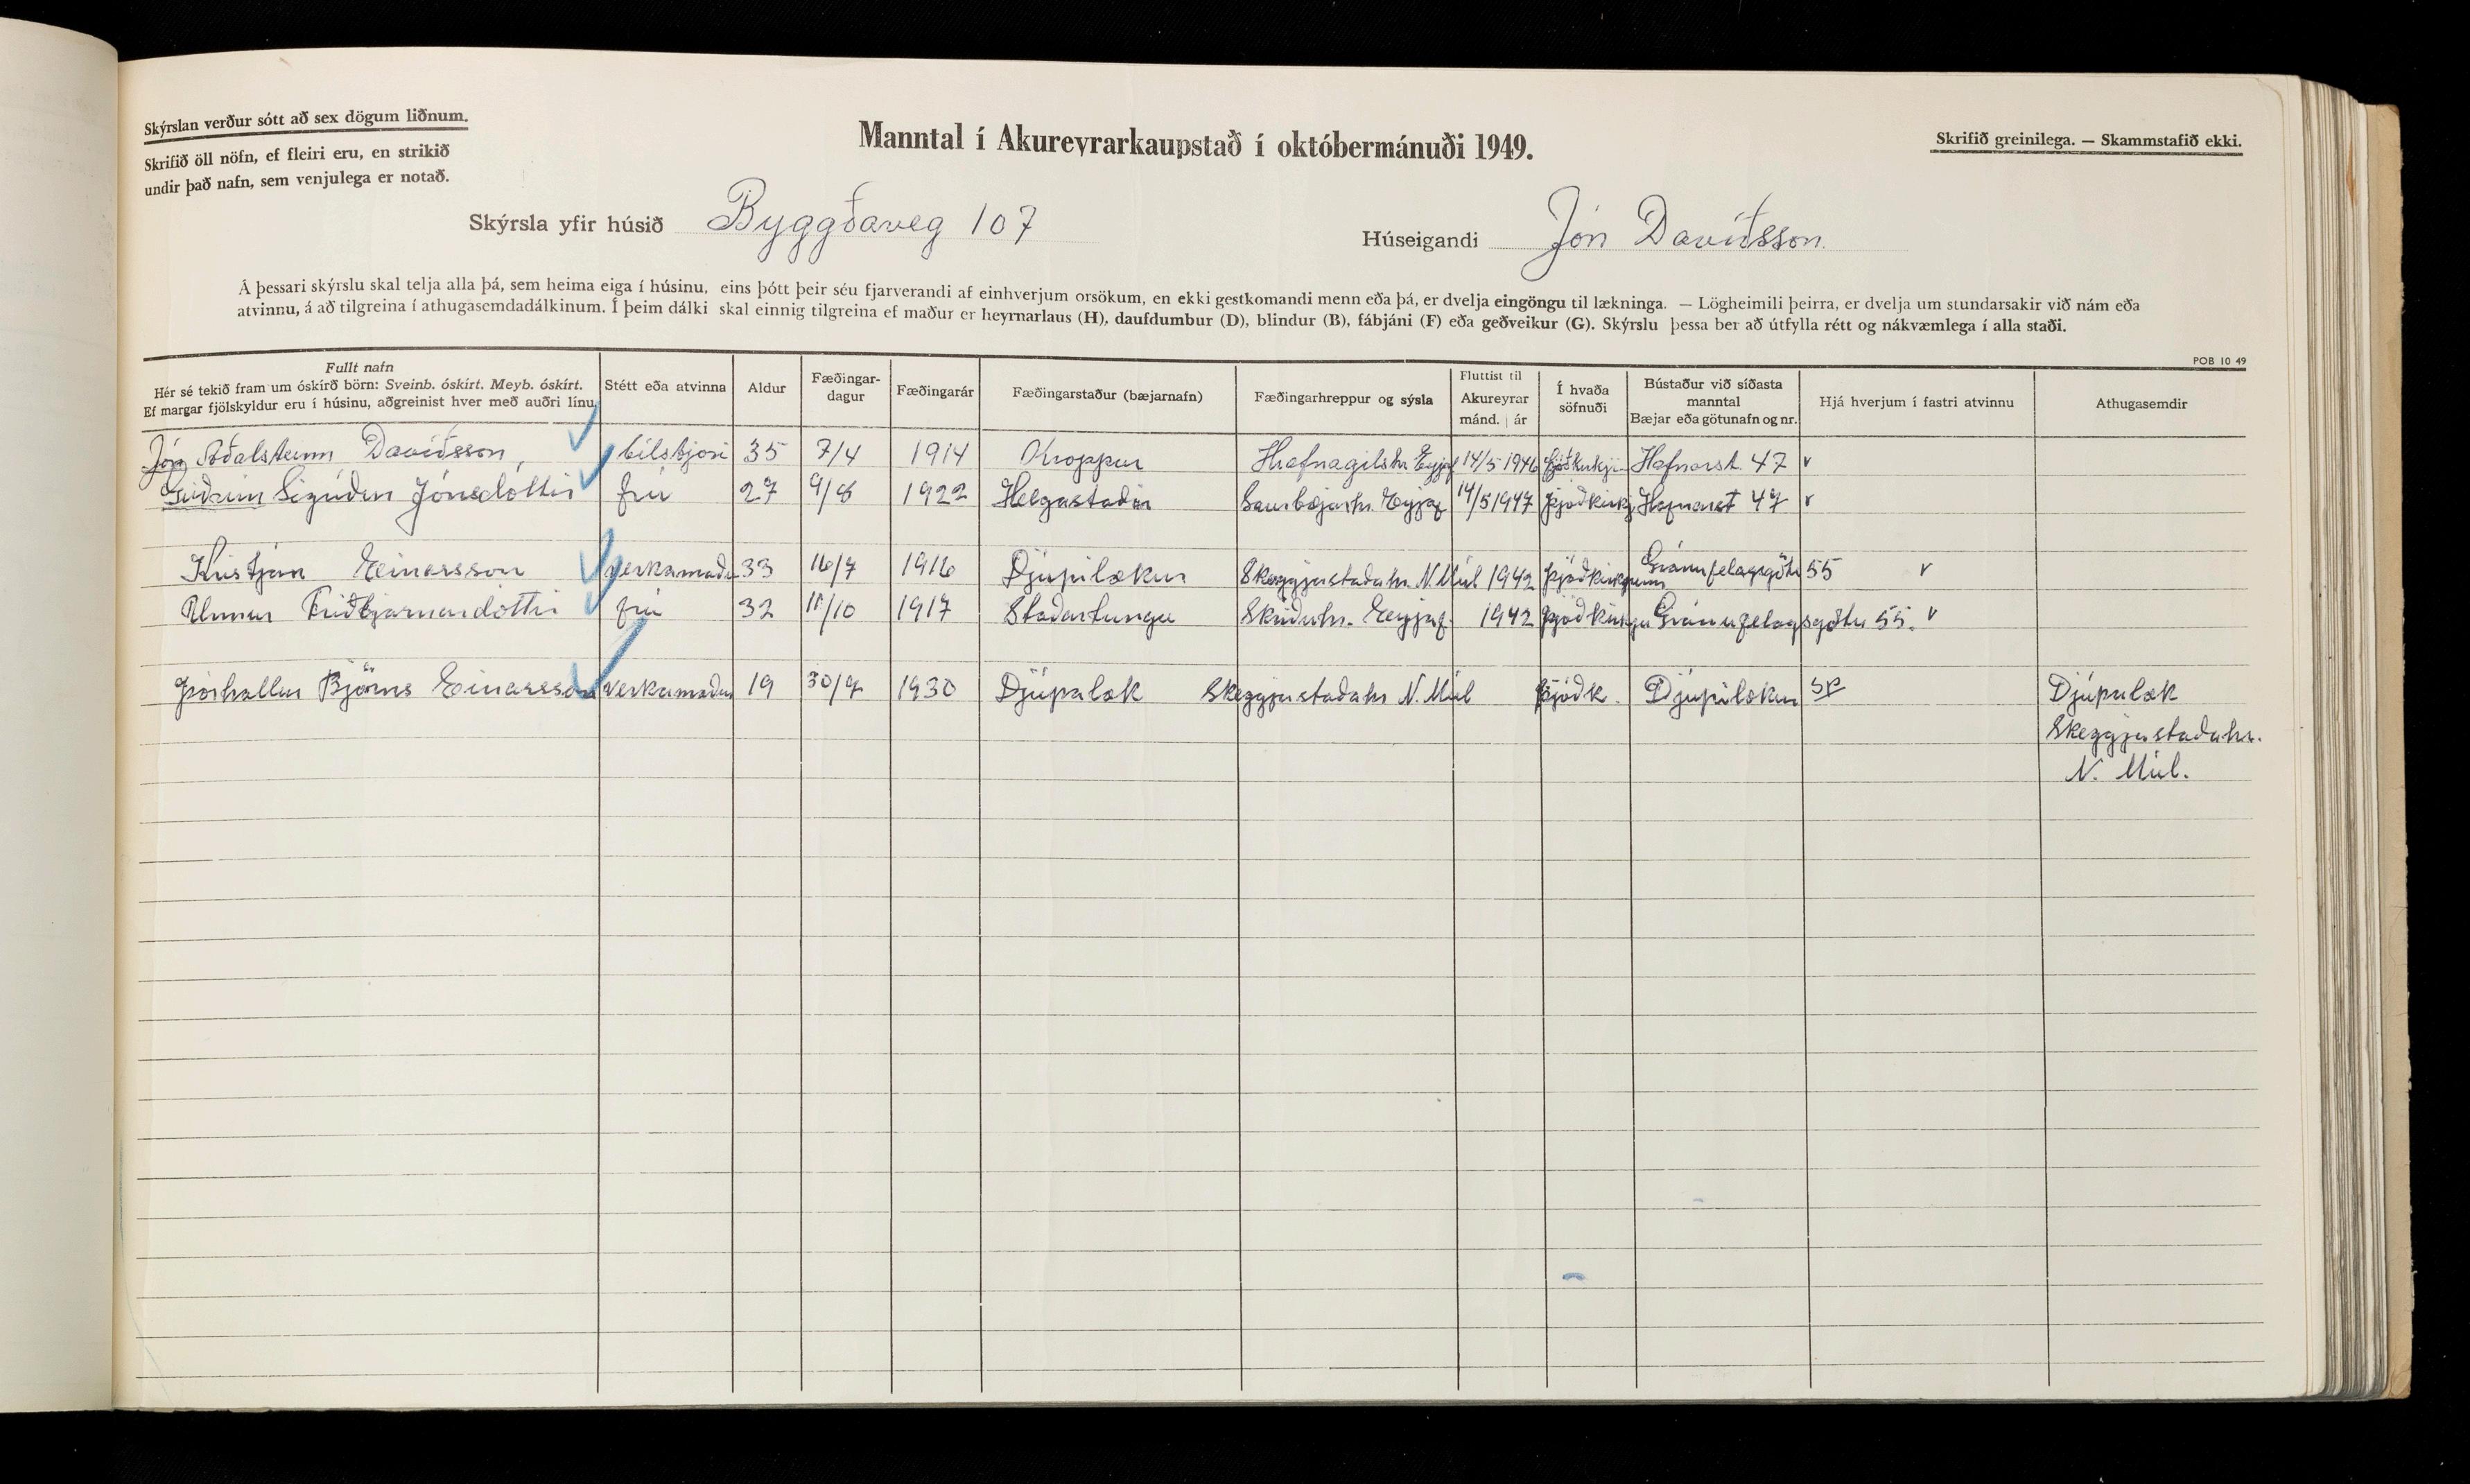 Skýrslan verður sótt að sex dögum liðnum.
Skrifið öll nöfn, ef fleiri eru, en strikið
undir það nafn, sem venjulega er notað.
Manntal í Akureyrarkaupstað í októbermánuði 1949.
Skrifið greinilega. — Skammstafið ekki.
Skýrsla yfir húsið Byggðaveg 107
Húseigandi Jón Davíðsson
Á þessari skýrslu skal telja alla þá, sem heima eiga í húsinu, eins þótt þeir séu fjarverandi af einhverjum orsökum, en ekki gestkomandi menn eða þá, er dvelja eingöngu til lækninga. — Lögheimili þeirra, er dvelja um stundarsakir við nám eða
atvinnu, á að tilgreina í athugasemdadálkinum. Í þeim dálki skal einnig tilgreina ef maður er heyrnarlaus (H), daufdumbur (D), blindur (B), fábjáni (F) eða geðveikur (G). Skýrslu þessa ber að útfylla rétt og nákvæmlega í alla staði.
POB 10 49
Fullt nafn
Hér sé tekið fram um óskírð börn: Sveinb. óskírt. Meyb. óskírt.
Ef margar fjölskyldur eru í húsinu, aðgreinist hver með auðri línu.
Stétt eða atvinna
Aldur
Fæðingar-
dagur
Fæðingarár
Fæðingarstaður (bæjarnafn)
Fæðingarhreppur og sýsla
Fluttist til
Akureyrar
mánd. | ár
Í hvaða
söfnuði
Bústaður við síðasta
manntal
Bæjar eða götunafn og nr.
Hjá hverjum í fastri atvinnu
Athugasemdir
Jón Aðalsteinn Davíðsson, bílstjóri 35 7/4 1914 Kroppur Hrafnagilshr. Eyjaf 14/5 1946 Hafnarst. 47 v
Guðrún Sigríður Jónsdóttir frú 27 9/8 1922 Helgastaðir Saurbæjarhr. Eyjaf 14/5 1947 Þjóðkirkj Hafnarst 47 v
Kristján Einarsson verkamaður 33 16/7 1916 Djúpilækur Skeggjastaðahr. N. Múl 1942 Þjóðkirkjunni Gránufelagsgötu 55 v
Unnur Friðbjarnardóttir frú 32 11/10 1917 Staðartunga Skriðuhr. Eyjaf. 1942 Þjóðkirkju Gránufelagsgötu 55. v
Þórhallur Björns Einarsson verkamaður 19 30/9 1930 Djúpalæk Skeggjastaðahr N. Múl Þjóðk. Djúpilækur Djúpalæk
Skeggjastaðahr.
N. Múl.